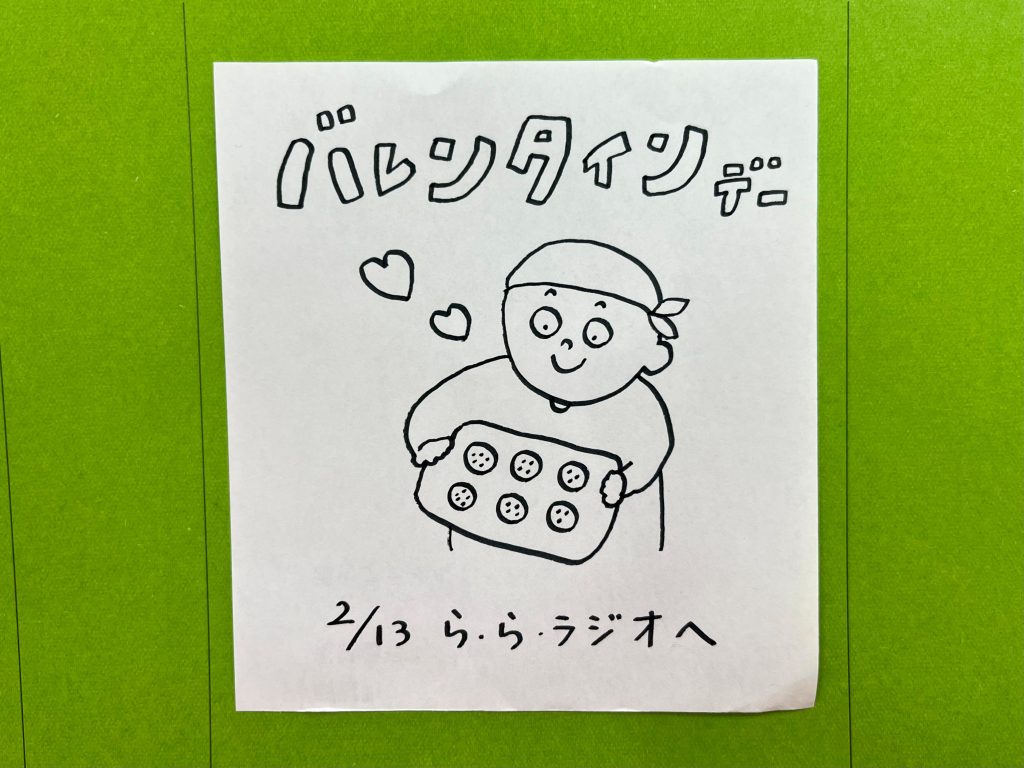 バレンタインデー
2/13 ら・ら・ラジオへ